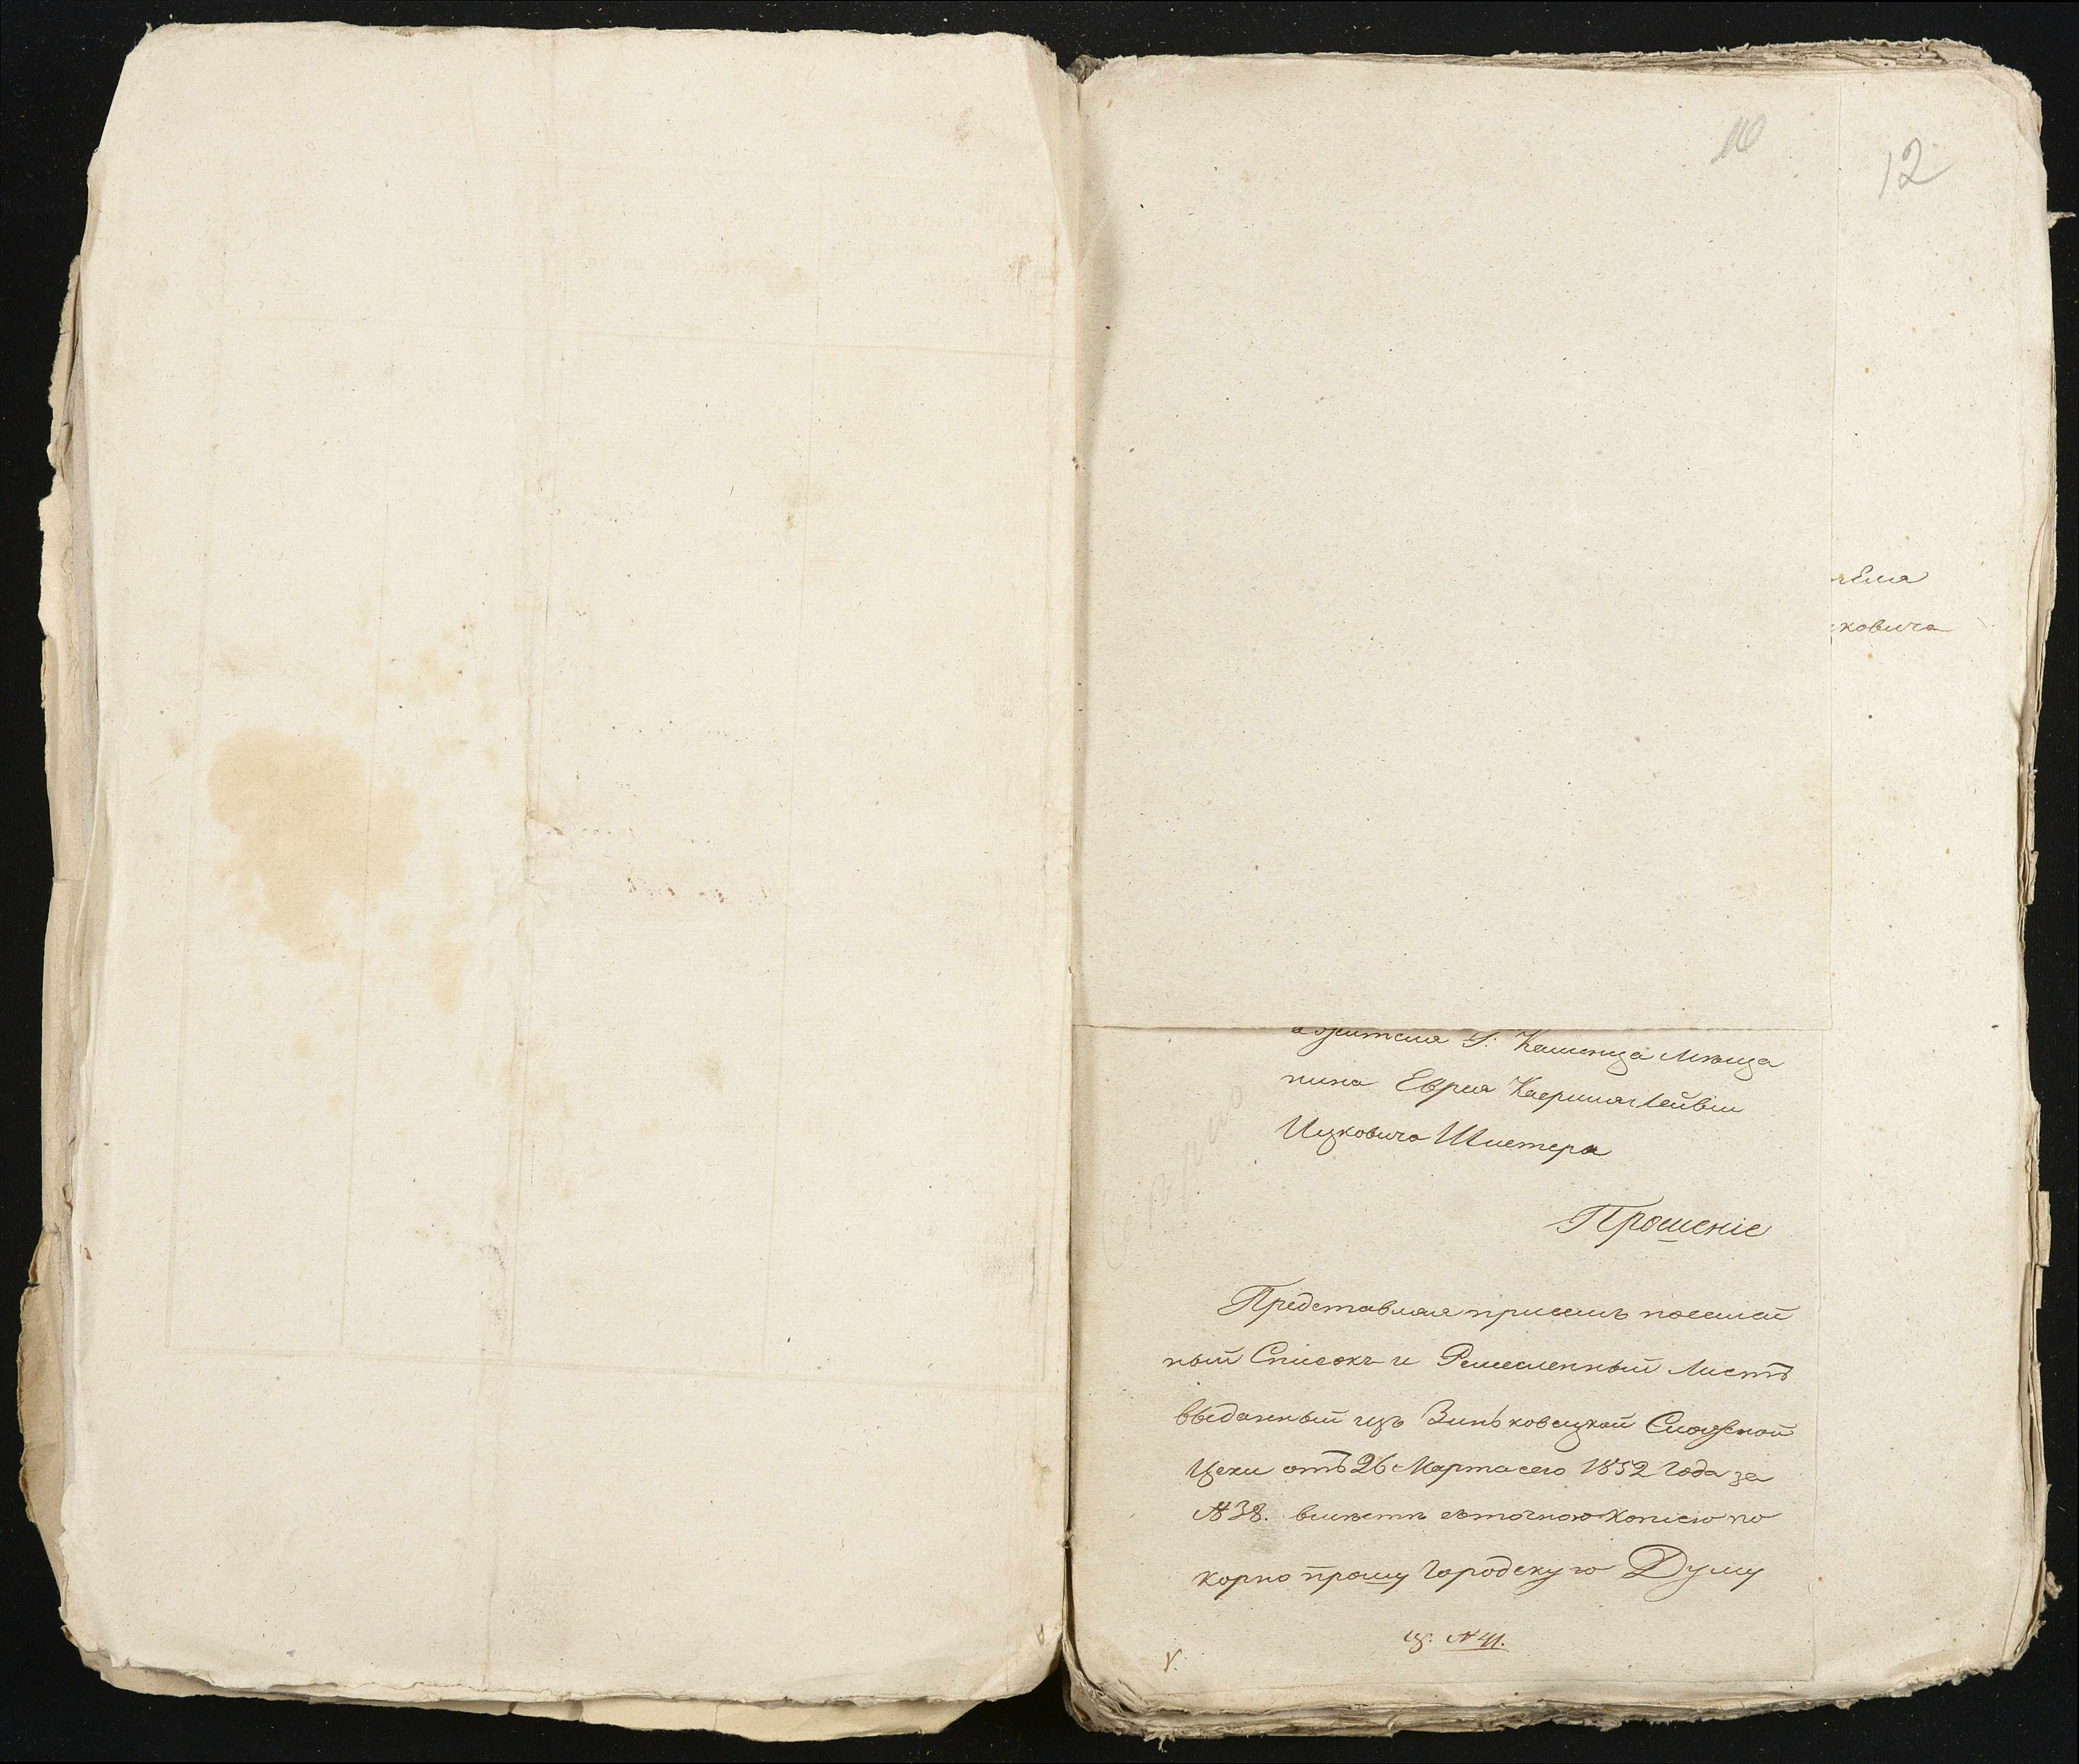 10
12
еля
ковича
жителя Г. Каменца Мѣща
нина Еврея Лейви
Ицковича Шметера
Прошеніе
Представляя при семъ посемей
ный Списокъ и Ремесленный Листъ
выданный изъ Зиньковецкой
Цехи отъ 26 Марта сего 1852 Года за
№ 38. вмѣстѣ съ точною Копіею по
корно прошу Городскую Думу
№ 41.